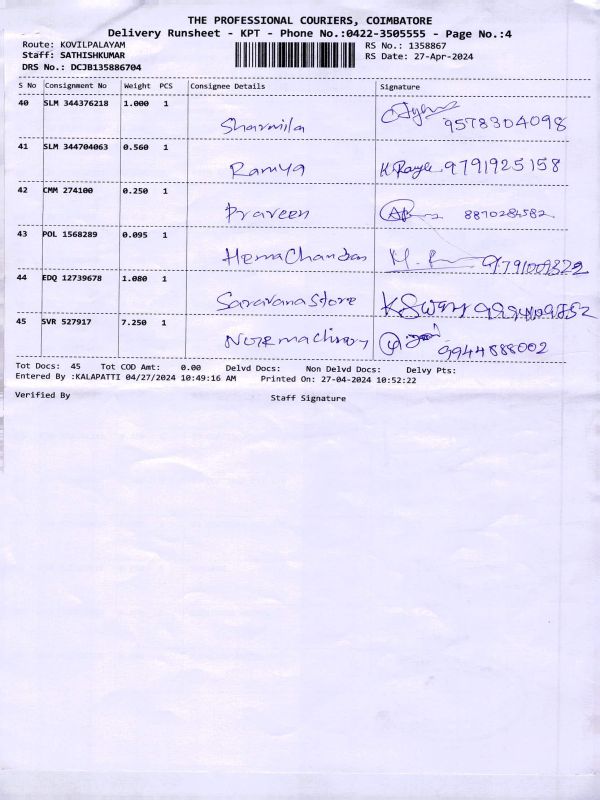 THE PROFESSIONAL COURIERS, COIMBATORE
Delivery Runsheet - KPT - Phone No.:0422-3505555 - Page No.:4
Route: KOVILPALAYAM RS No.: 1358867
Staff: SATHISHKUMAR RS Date: 27-Apr-2024
DRS No.: DCJB135886704
S No Consignment No Weight PCS Consignee Details Signature
40 SLM 344376218 1.000 1
Sharmila 9578304098
41 SLM 344704063 0.560 1
Ramya 9791925158
42 CMM 274100 0.250 1
Praveen 8870284582
43 POL 1568289 0.095 1
HemaChandan
44 EDQ 12739678 1.080 1
Saravana Store
45 SVR 527917 7.250 1
9944888002
Tot Docs: 45 Tot COD Amt: 0.00 Delvd Docs: Non Delvd Docs: Delvy Pts:
Entered By :KALAPATTI 04/27/2024 10:49:16 AM Printed On: 27-04-2024 10:52:22
Verified By Staff Signature